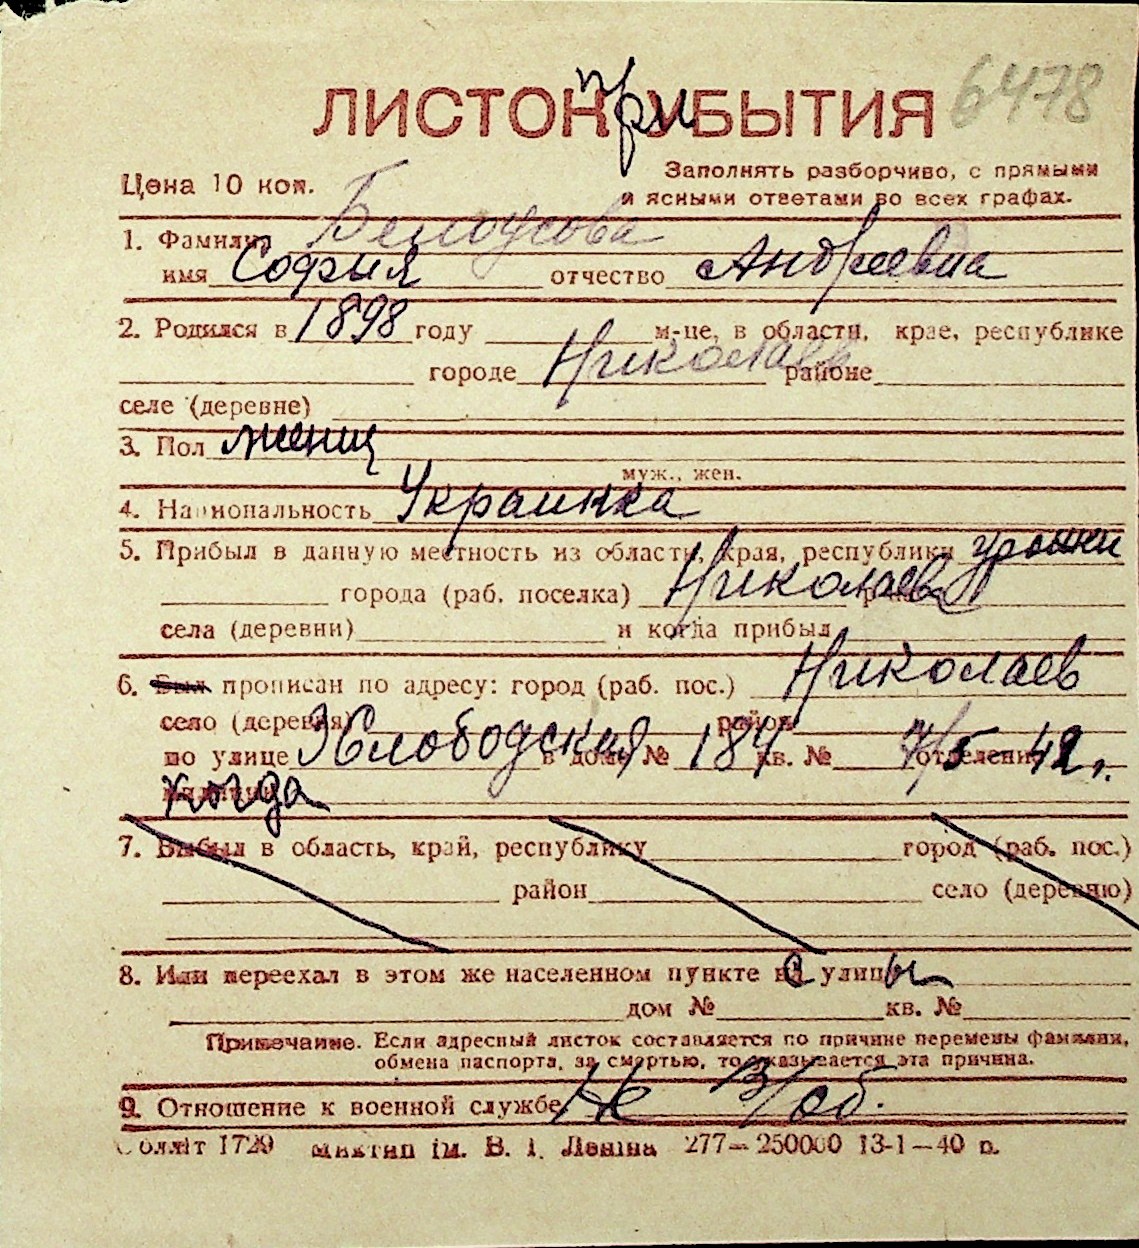 6478
ЛИСТОКприУБЫТИЯ
Цена 10 коп.
Заполнять разборчиво, с прямыми
и ясными ответами во всех графах.
1. Фамилия Белоусова
имя София отчество Андреевна
2. Родился в 1898 году м-це, в области, крае, республике
городе Николаев районе
селе (деревне)
3. Пол женщ
муж., жен.
4. Национальность Украинка
5. Прибыл в данную местность из области, края, республики урож
города (раб. поселка) Николаева
села (деревни) и когда прибыл
6. Был прописан по адресу: город (раб. пос.) Николаев
село (деревня) район
по улице Слободская в доме № 184 кв. № отделение 7/5 - 42 г.
милиции когда
7. Выбыл в область, край, республику город (раб. пос.)
район село (деревню)
8. Или переехал в этом же населенном пункте с улицы
дом № кв. №
Примечание. Если адресный листок составляется по причине перемены фамилии,
обмена паспорта, за смертью, то указывается эта причина.
9. Отношение к военной службе Не в/об.
Облліт 1729 Миктип ім. В. І. Леніна 277—250000 13-1—40 р.